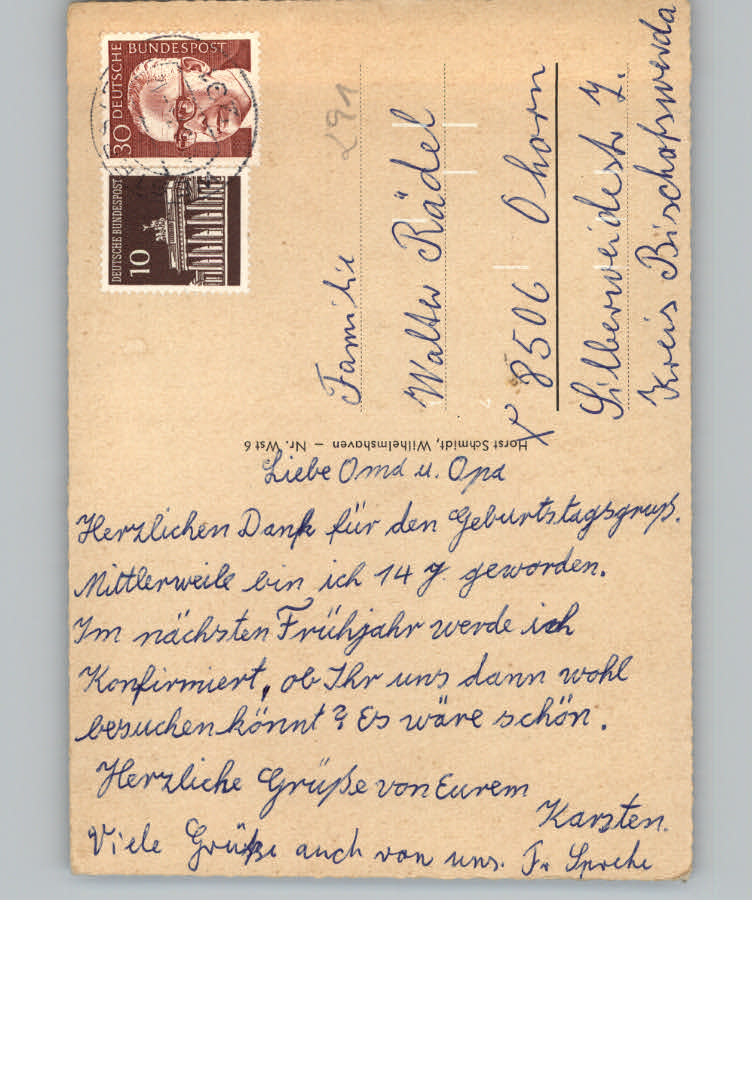 DEUTSCHE BUNDESPOST
30
DEUTSCHE BUNDESPOST
10
291
Familie
Walter Rädel
X 8506 Ohorn
Silberweidestr 7.
Kreis Bischofswerda
Horst Schmidt, Wilhelmshaven – Nr. Wst 6
Liebe Oma u. Opa
Herzlichen Dank für den Geburtstagsgruß.
Mittlerweile bin ich 14 J. geworden.
Im nächsten Frühjahr werde ich
Konfirmiert, ob Ihr uns dann wohl
besuchen könnt? Es wäre schön.
Herzliche Grüße von Eurem
Karsten.
Viele Grüße auch von uns. Fr